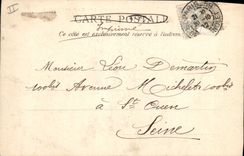 II
CARTE POSTALE
Imprimé
Ce côté est exclusivement réservé à l'adresse
Monsieur Léon Demartin
100bis Avenue Michelet 100bis
à St Ouen
Seine